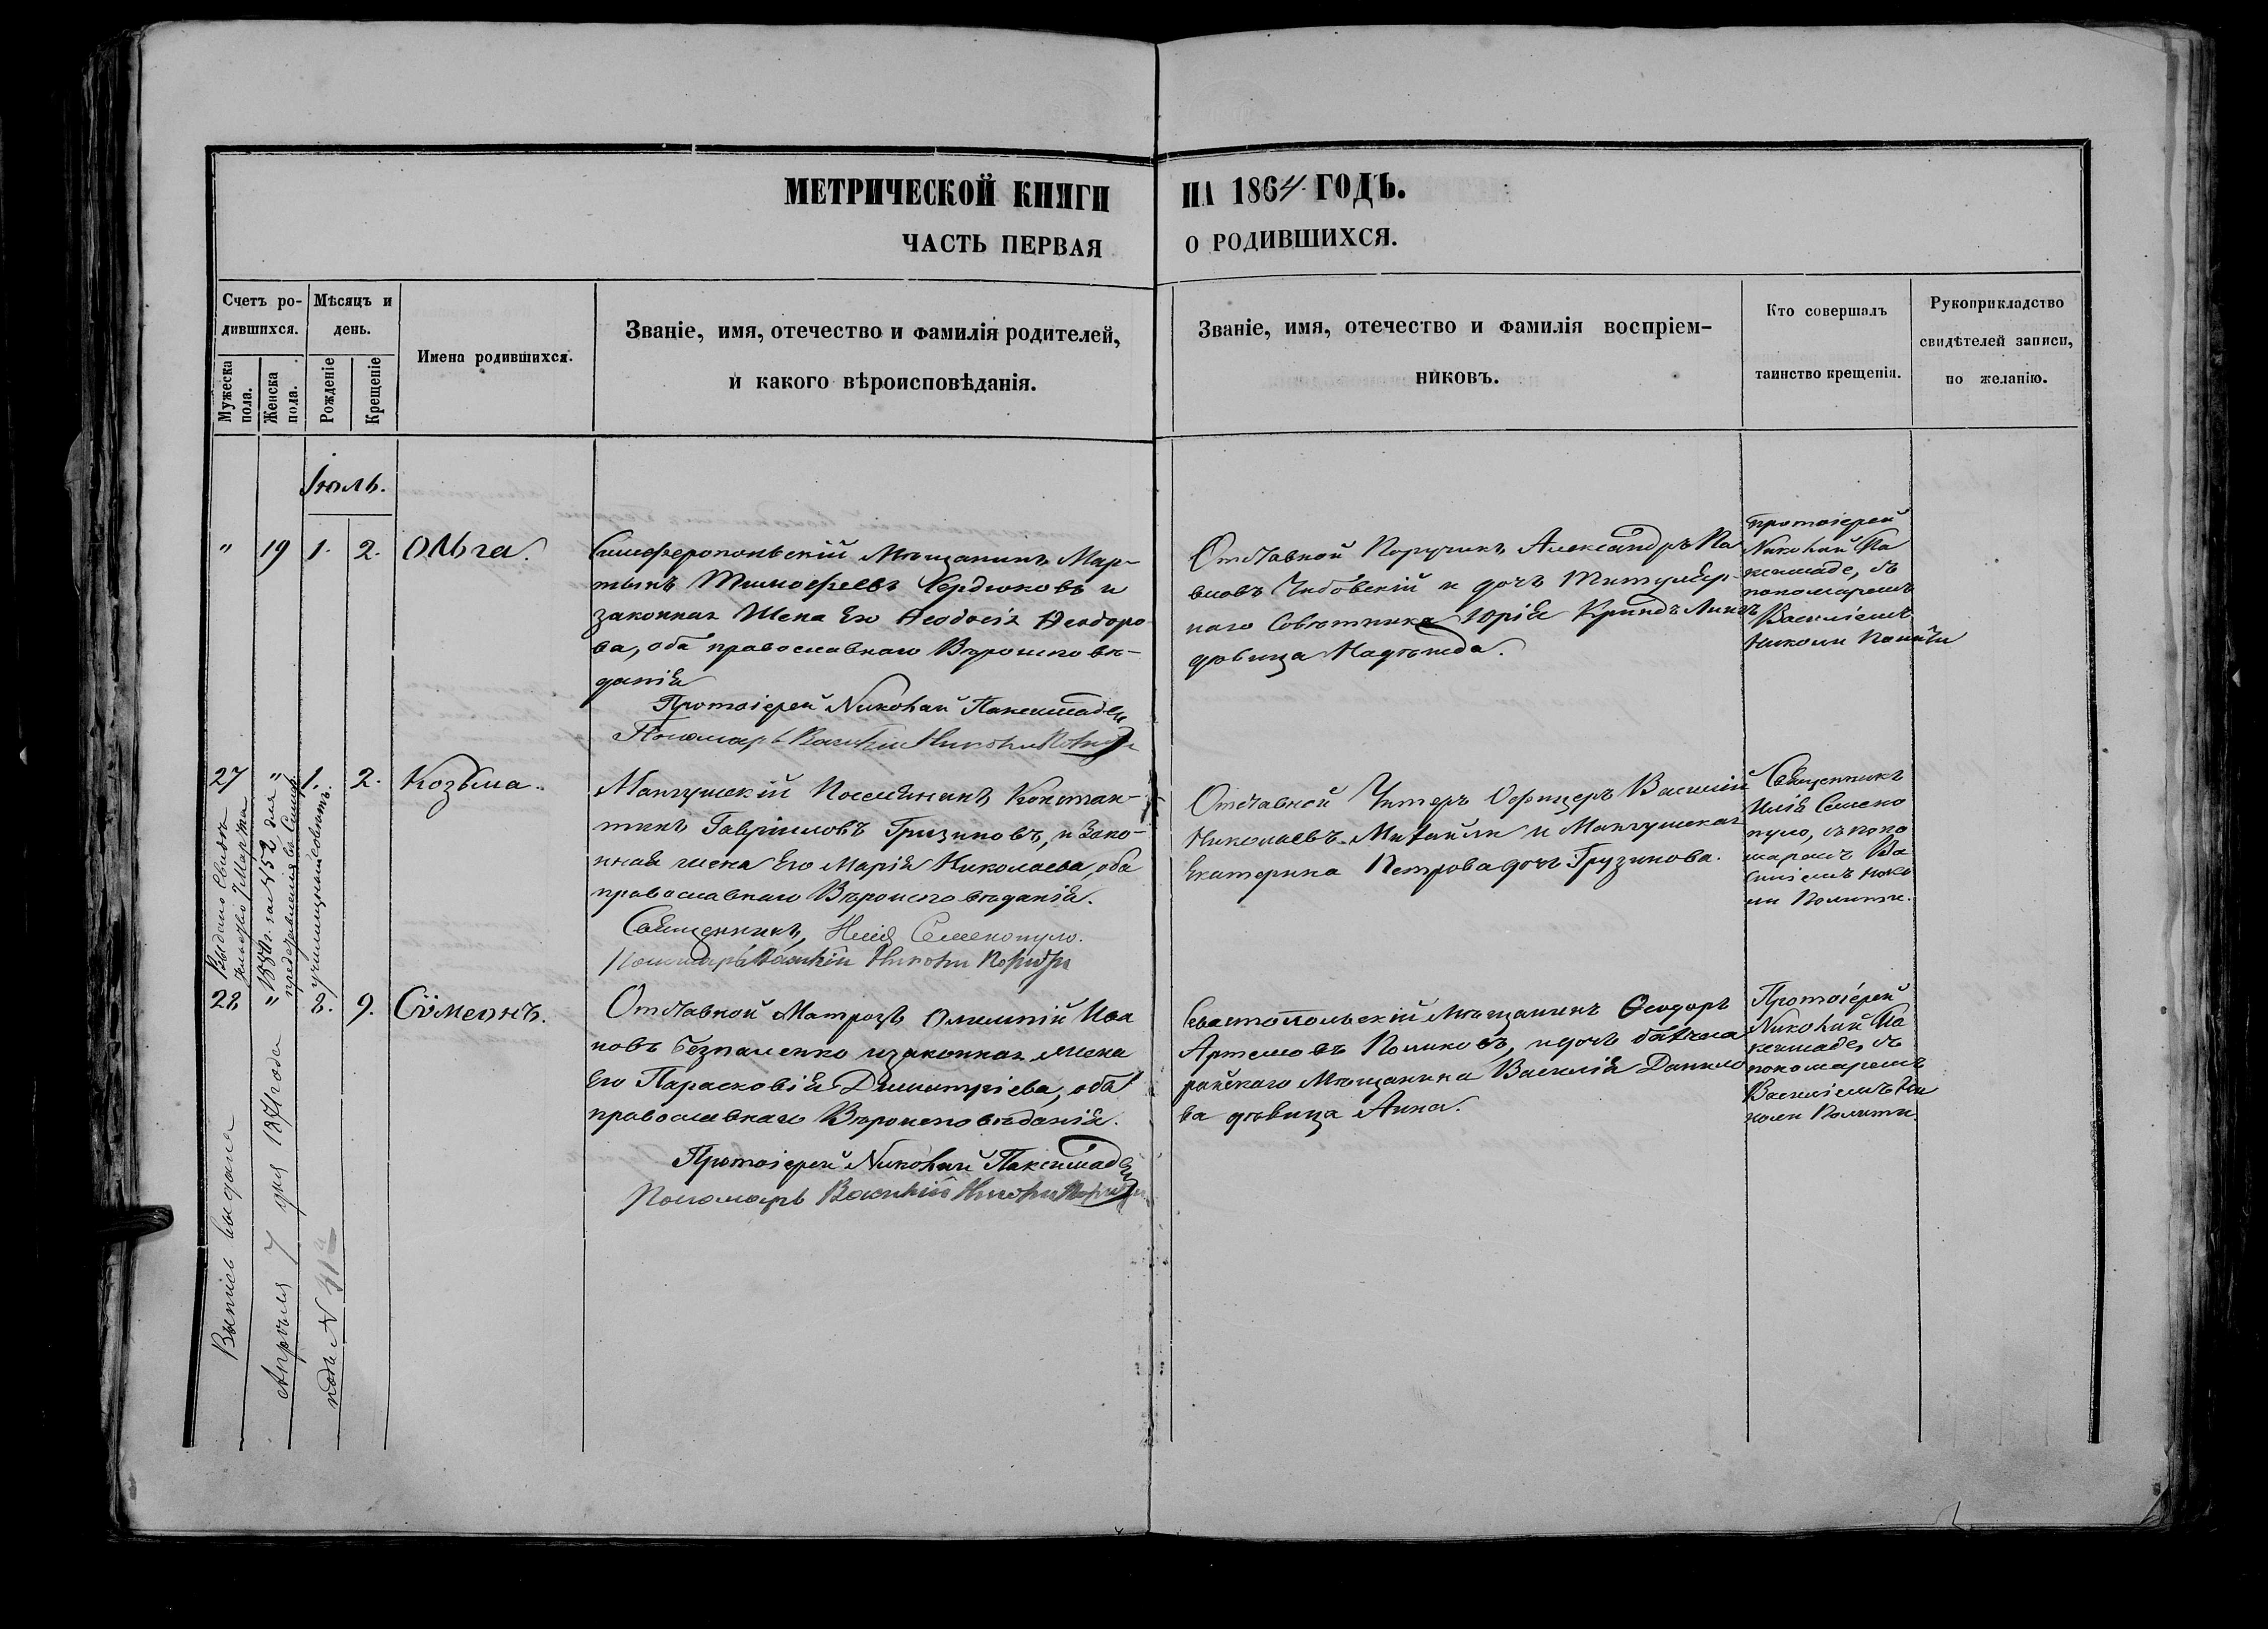 МЕТРИЧЕСКОЙ КНИГИ НА 1864 ГОДЪ.
ЧАСТЬ ПЕРВАЯ О РОДИВШИХСЯ.
Счетъ родившихся.
Мужеска пола.
Женска пола.
Мѣсяцъ и день.
Рожденіе
Крещеніе
Имена родившихся.
Званіе, имя, отечество и фамилія родителей,
и какого вѣроисповѣданія.
Званіе, имя, отечество и фамилія воспріем-
никовъ.
Кто совершалъ
таинство крещенія.
Рукоприкладство
свидѣтелей записи,
по желанію.
Іюль.
" 19 1. 2. Ольга.
Симферопольскій Мѣщанинъ Мар-
тынъ Тимофеевъ Сердюковъ и
законная Жена Его Ѳеодосія Ѳеодоро
ва, оба православнаго Вѣроисповѣ-
данія
Протоіерей Николай Паксимаде
Пономарь Василій Николи Полити
Отставной Поручикъ Александръ Па
вловъ Чибовскій и дочь Титуляр-
наго Совѣтника Юрія
дѣвица Надѣжда.
Протоіерей
Николай Па
ксимаде, съ
пономаремъ
Василіемъ
Николи Полити
27 " 1. 2. Козьма.
Мангушскій Поселянинъ Констан-
тинъ Гавріиловъ Грузиновъ, и Зако-
нная жена Его Марія Николаева, оба
православнаго Вѣроисповѣданія.
Священникъ Илія Семенопуло.
Пономарь Василій Николи Полити
Отставной Унтеръ Офицеръ Василій
Николаевъ Михайли и Мангушская
Екатерина Петрова дочь Грузинова.
Священникъ
Илія Семено
пуло, съ поно
маремъ Ва
силіемъ Нико
ли Полити.
28 " 8. 9. Сѵмеонъ.
Отставной Матрозъ Олимпій Ива
новъ Безпаленко и законная Жена
Его Парасковія Димитріева, оба
православнаго Вѣроисповѣданія.
Протоіерей Николай Паксимаде
Пономарь Василій Николи Полити
Севастопольскій Мѣщанинъ Ѳеодоръ
Артемовъ Поляковъ, и дочь бахчиса
райскаго Мѣщанина Василія Данило
ва дѣвица Анна.
Протоіерей
Николай Па
ксимаде, съ
пономаремъ
Василіемъ Ни
коли Полити
Выдано Свидѣ
тельство 7 Марта
1880 г. за № 52 для
представленія въ Симф.
училищный совѣтъ.
Выпись выдана
Апрѣля 7 дня 1871 года
подъ №